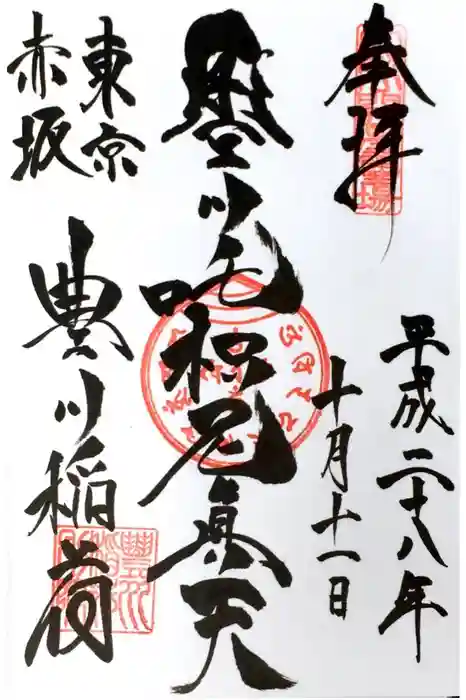 奉拝
平成二十八年
十月十一日
豊川吒枳尼真天
東京
赤坂
豊川稲荷